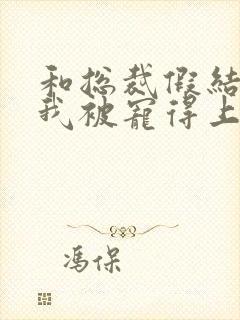 和总裁假结
我被宠得上
冯保